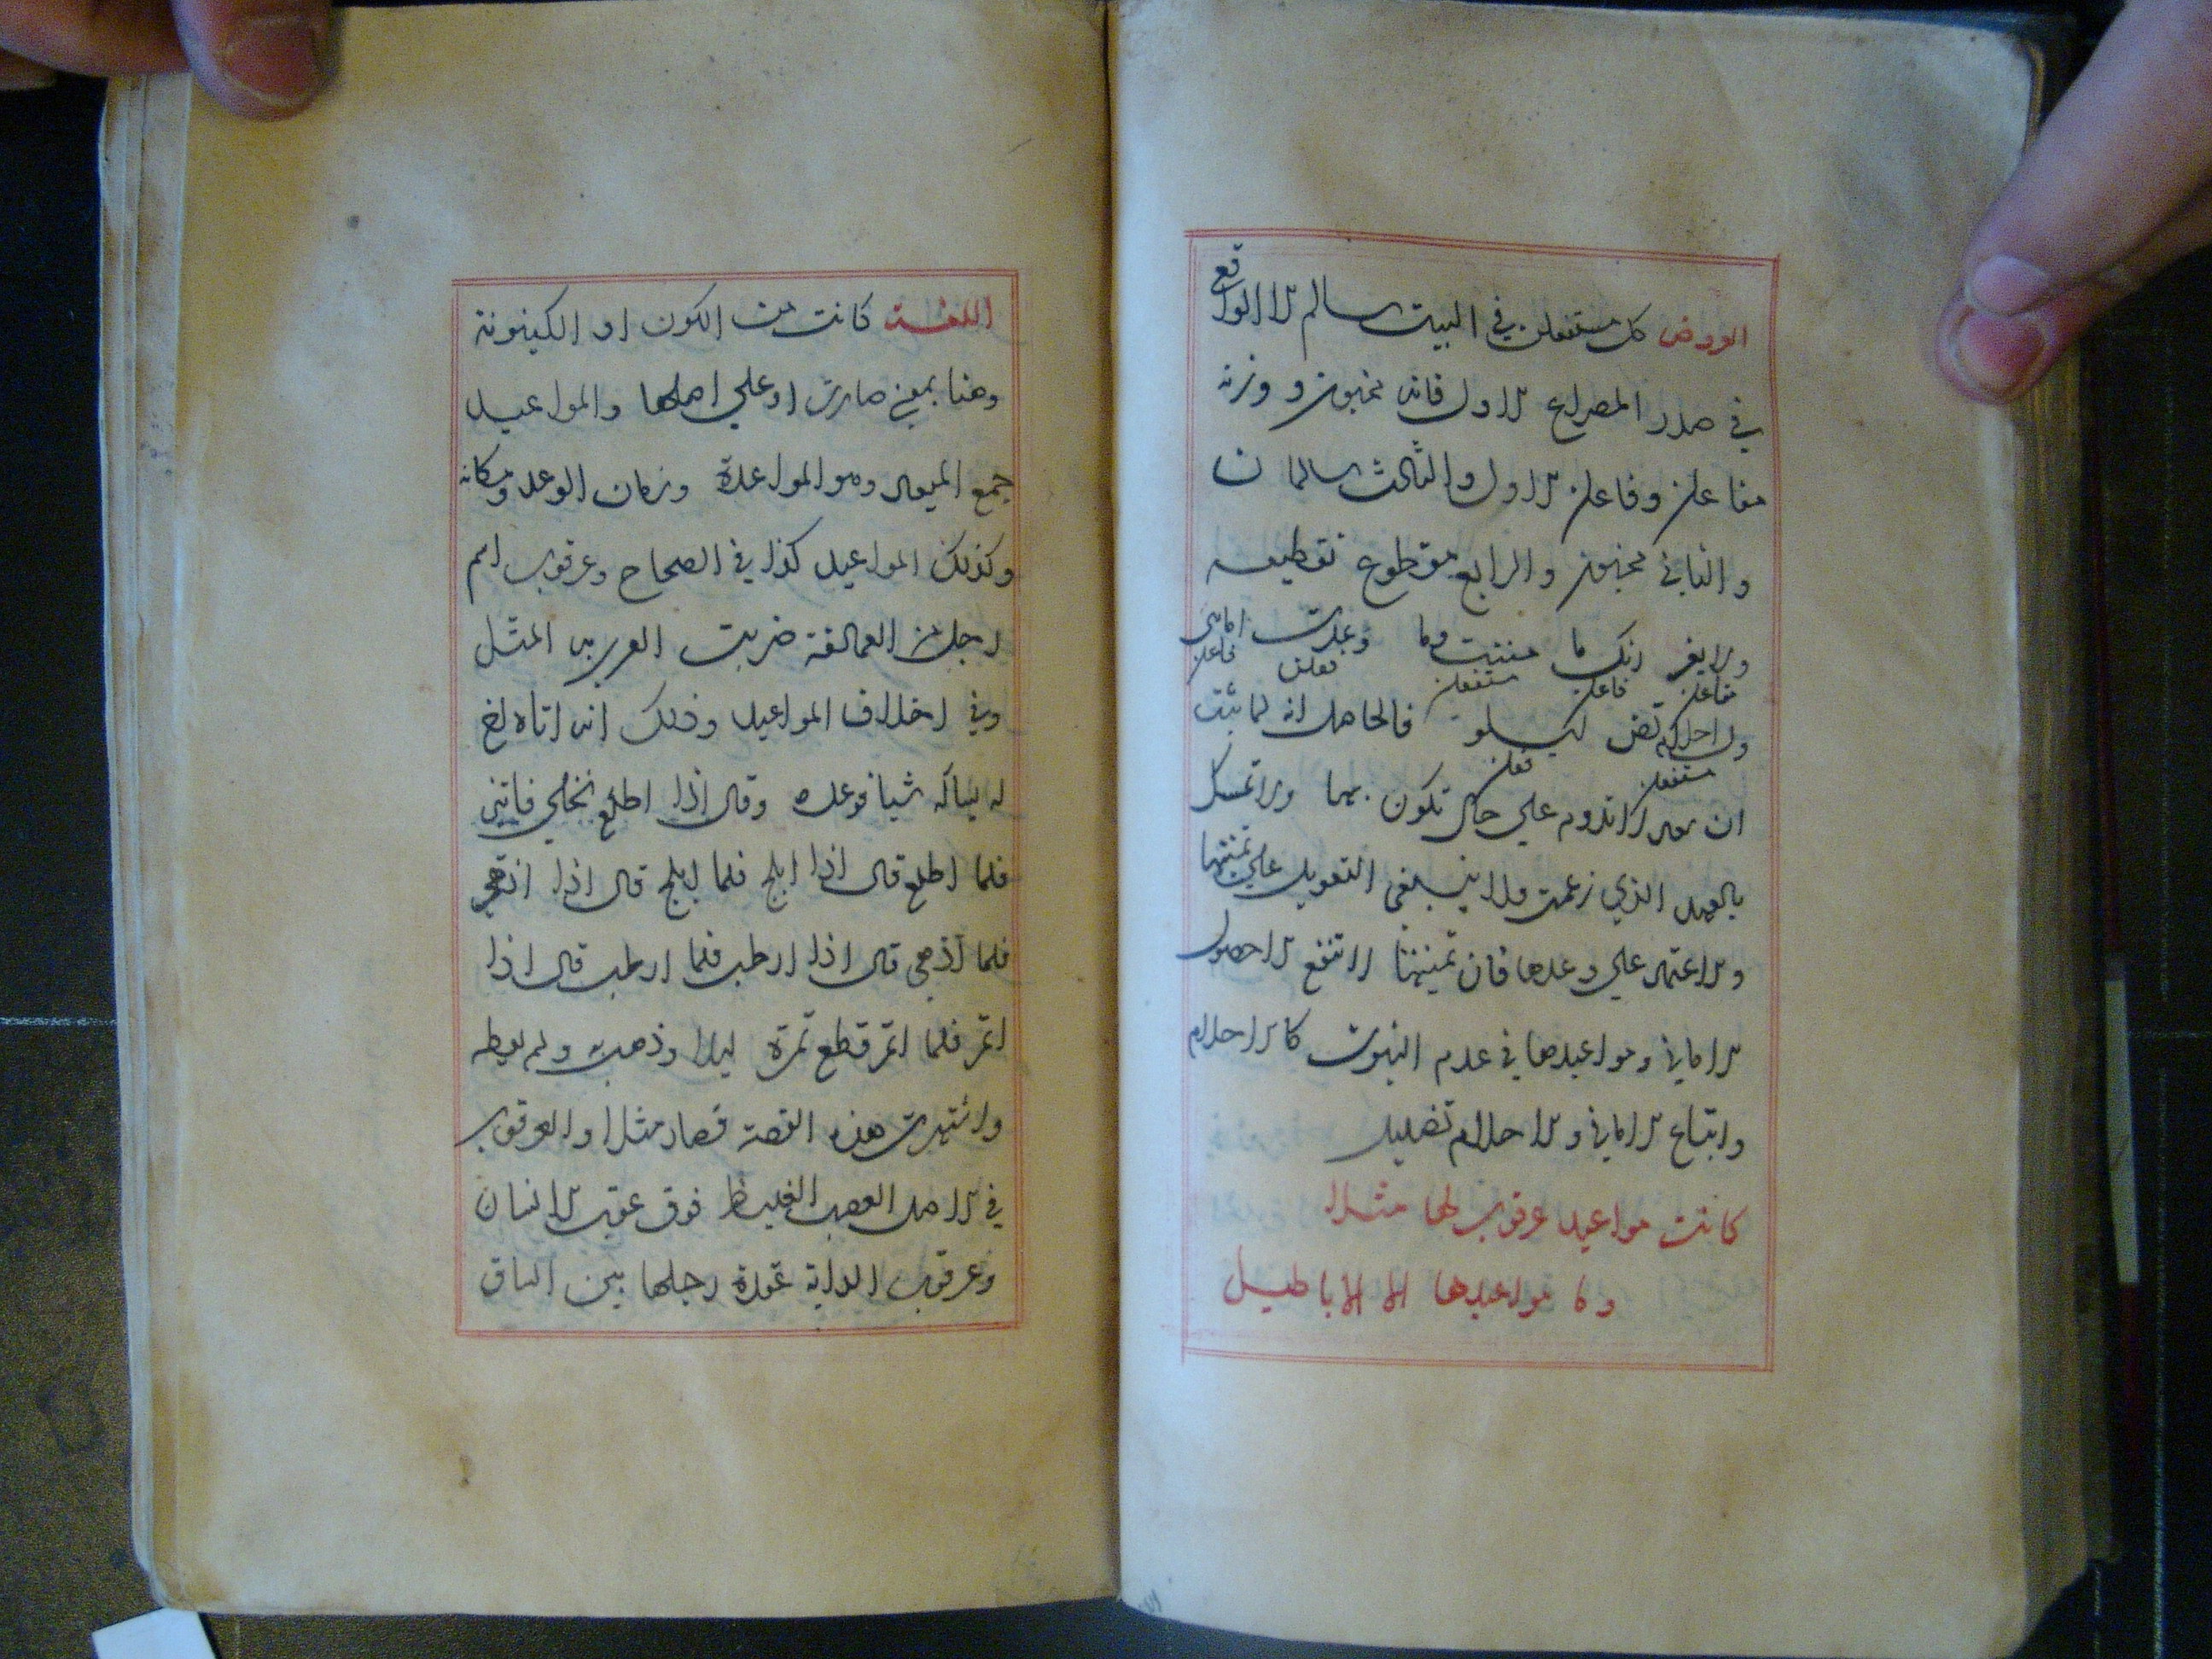 العروض كل مستفعلن في البيت سالم الا الواقع
في صدر المصراع الاول فانه مخبون ووزنه
مفاعلن وفاعلن الاول والثالث سالمان
والثاني مخبون والرابع مقطوع تقطيعه
ولايغر رنك ما مننت وما وعدت اماني
مفاعلن فاعلن مستفعلن فعلن فاعلن
ول احلام تض ليلو فالحاصل انه لما ثبت
مستفعلن فعلن
ان سعاد لا تدوم علي حال تكون بها ولا تمسك
بالعهد الذي زعمت ولا ينبغي التعويل علي تمنيتها
ولا اعتماد علي وعدها فان تمنيتها لا تنفع لا حصول
الاماني ومواعيدها في عدم الثبوت كالاحلام
واتباع الاماني والاحلام تضليل
كانت مواعيد عرقوب لها مثلا
وما مواعيدها الا الاباطيل
اللغت كانت من الكون او الكينونة
وهنا بمعني صارت او علي اصلها والمواعيد
جمع الميعاد وهو المواعدة وزمان الوعد ومكانه
وكذلك المواعيد كذا في الصحاح وعرقوب اسم
رجل من العمالقة ضربت العرب به المثل
وفي اخلاف المواعيد وذلك انه اتاه اخ
له يساله شيا فوعده وقال اذا اطلع نخلي فاتني
فلما اطلع قال اذا ابلح فلما ابلح قال اذا ازهي
فلما ازهي قال اذا ارطب فلما ارطب قال اذا
اتمر فلما اتمر قطع تمره ليلا وذهب به ولم يعطه
واشتهرت هذه القصة فصار مثلا والعرقوب
في الاصل العصب الغليظ فوق عقب الانسان
وعرقوب الدابة عقدة رجلها بين الساق